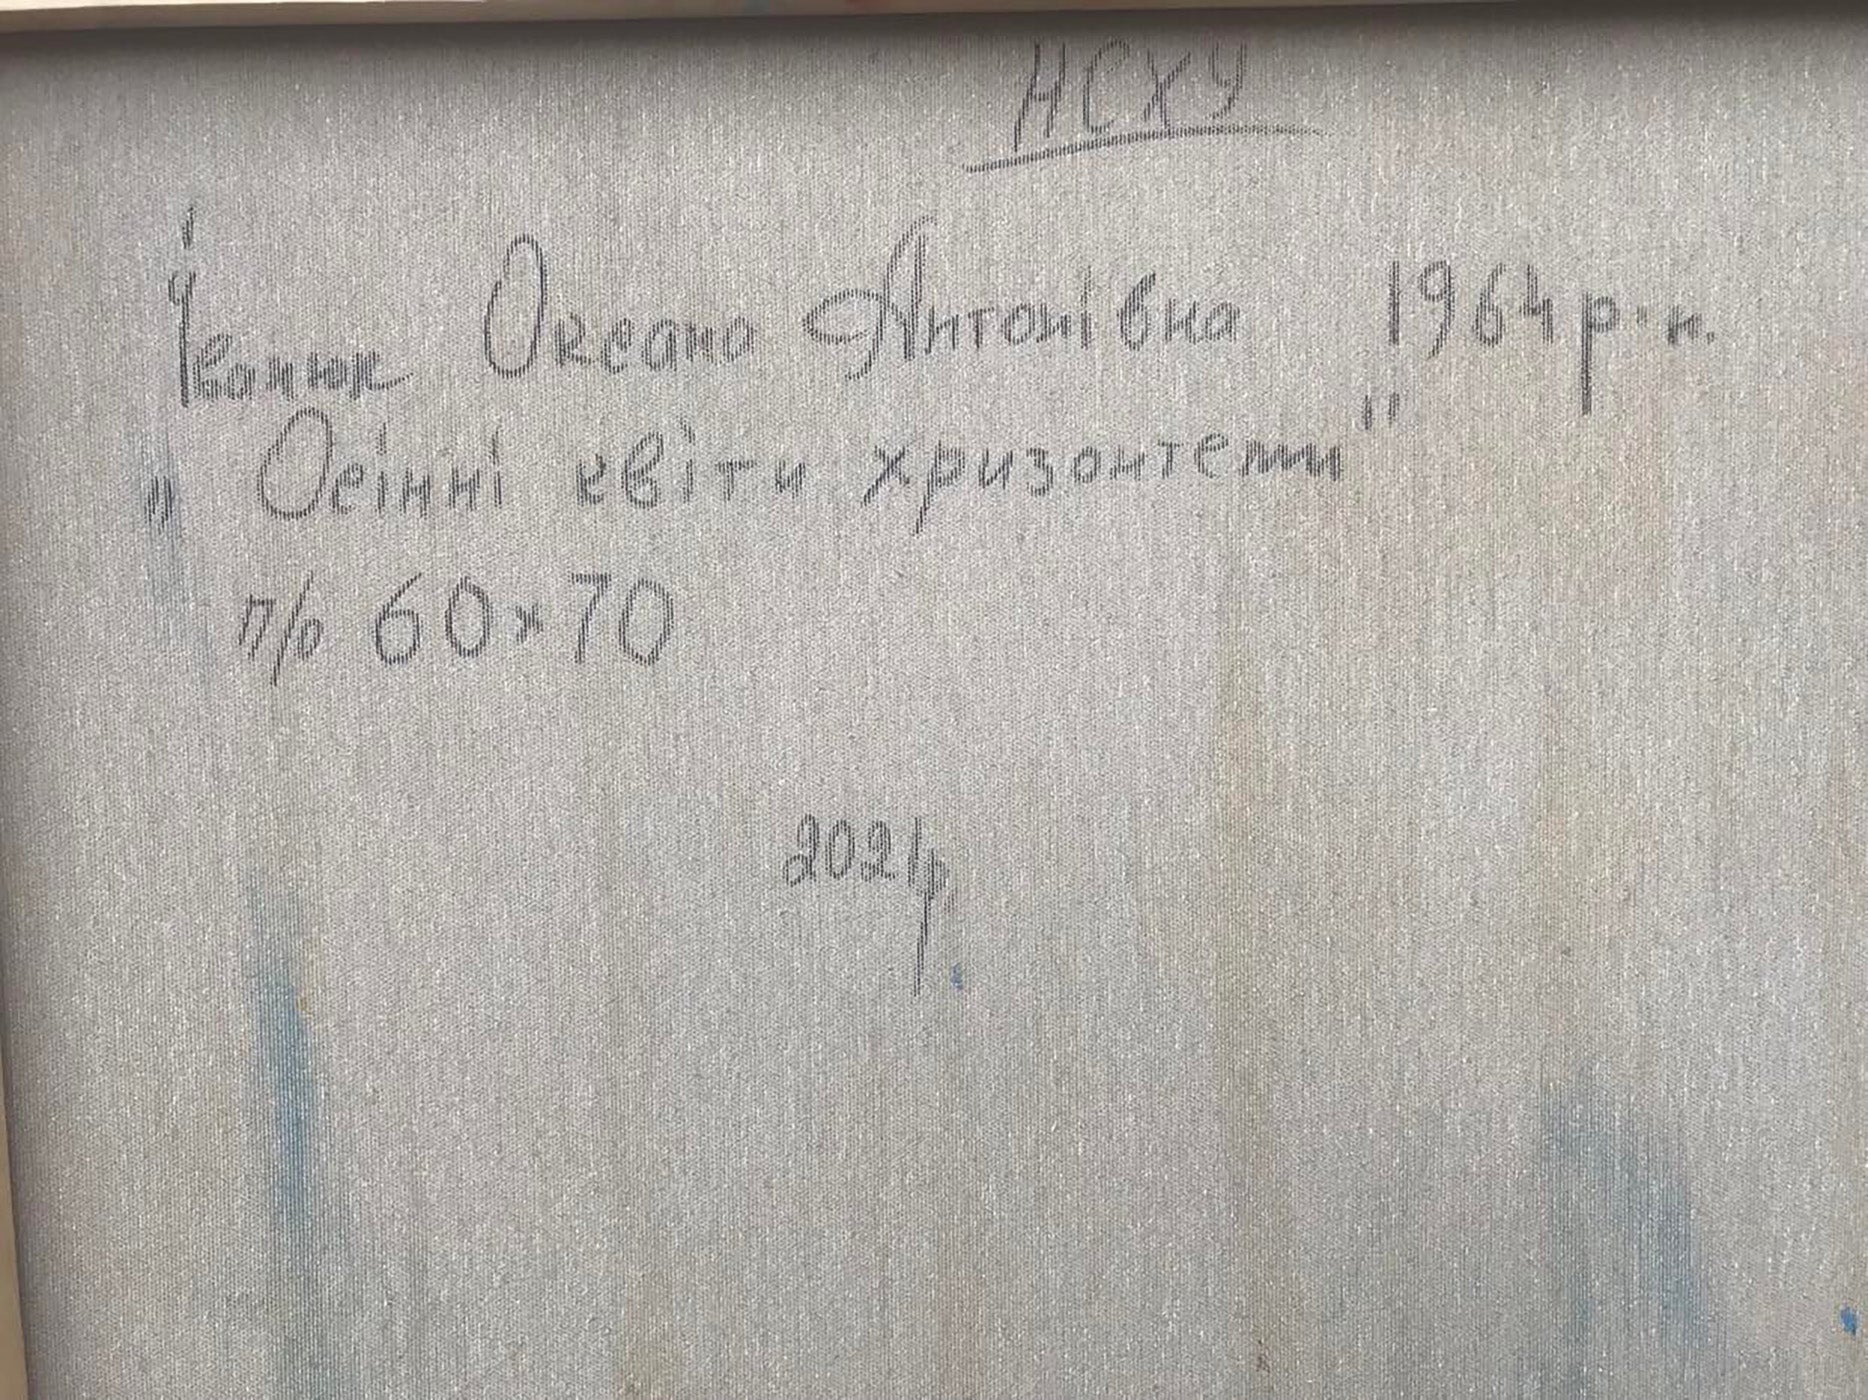 НСХУ
Іванюк Оксана Антонівна 1964 р.н.
„ Осінні квіти хризонтеми"
п/о 60х70
2021р.